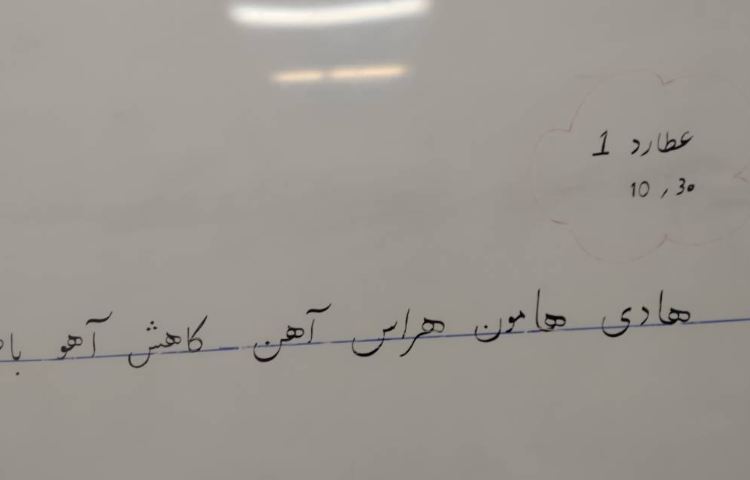 عطارد 1
10,30
هادی هامون هراس آهن کاهش آهو